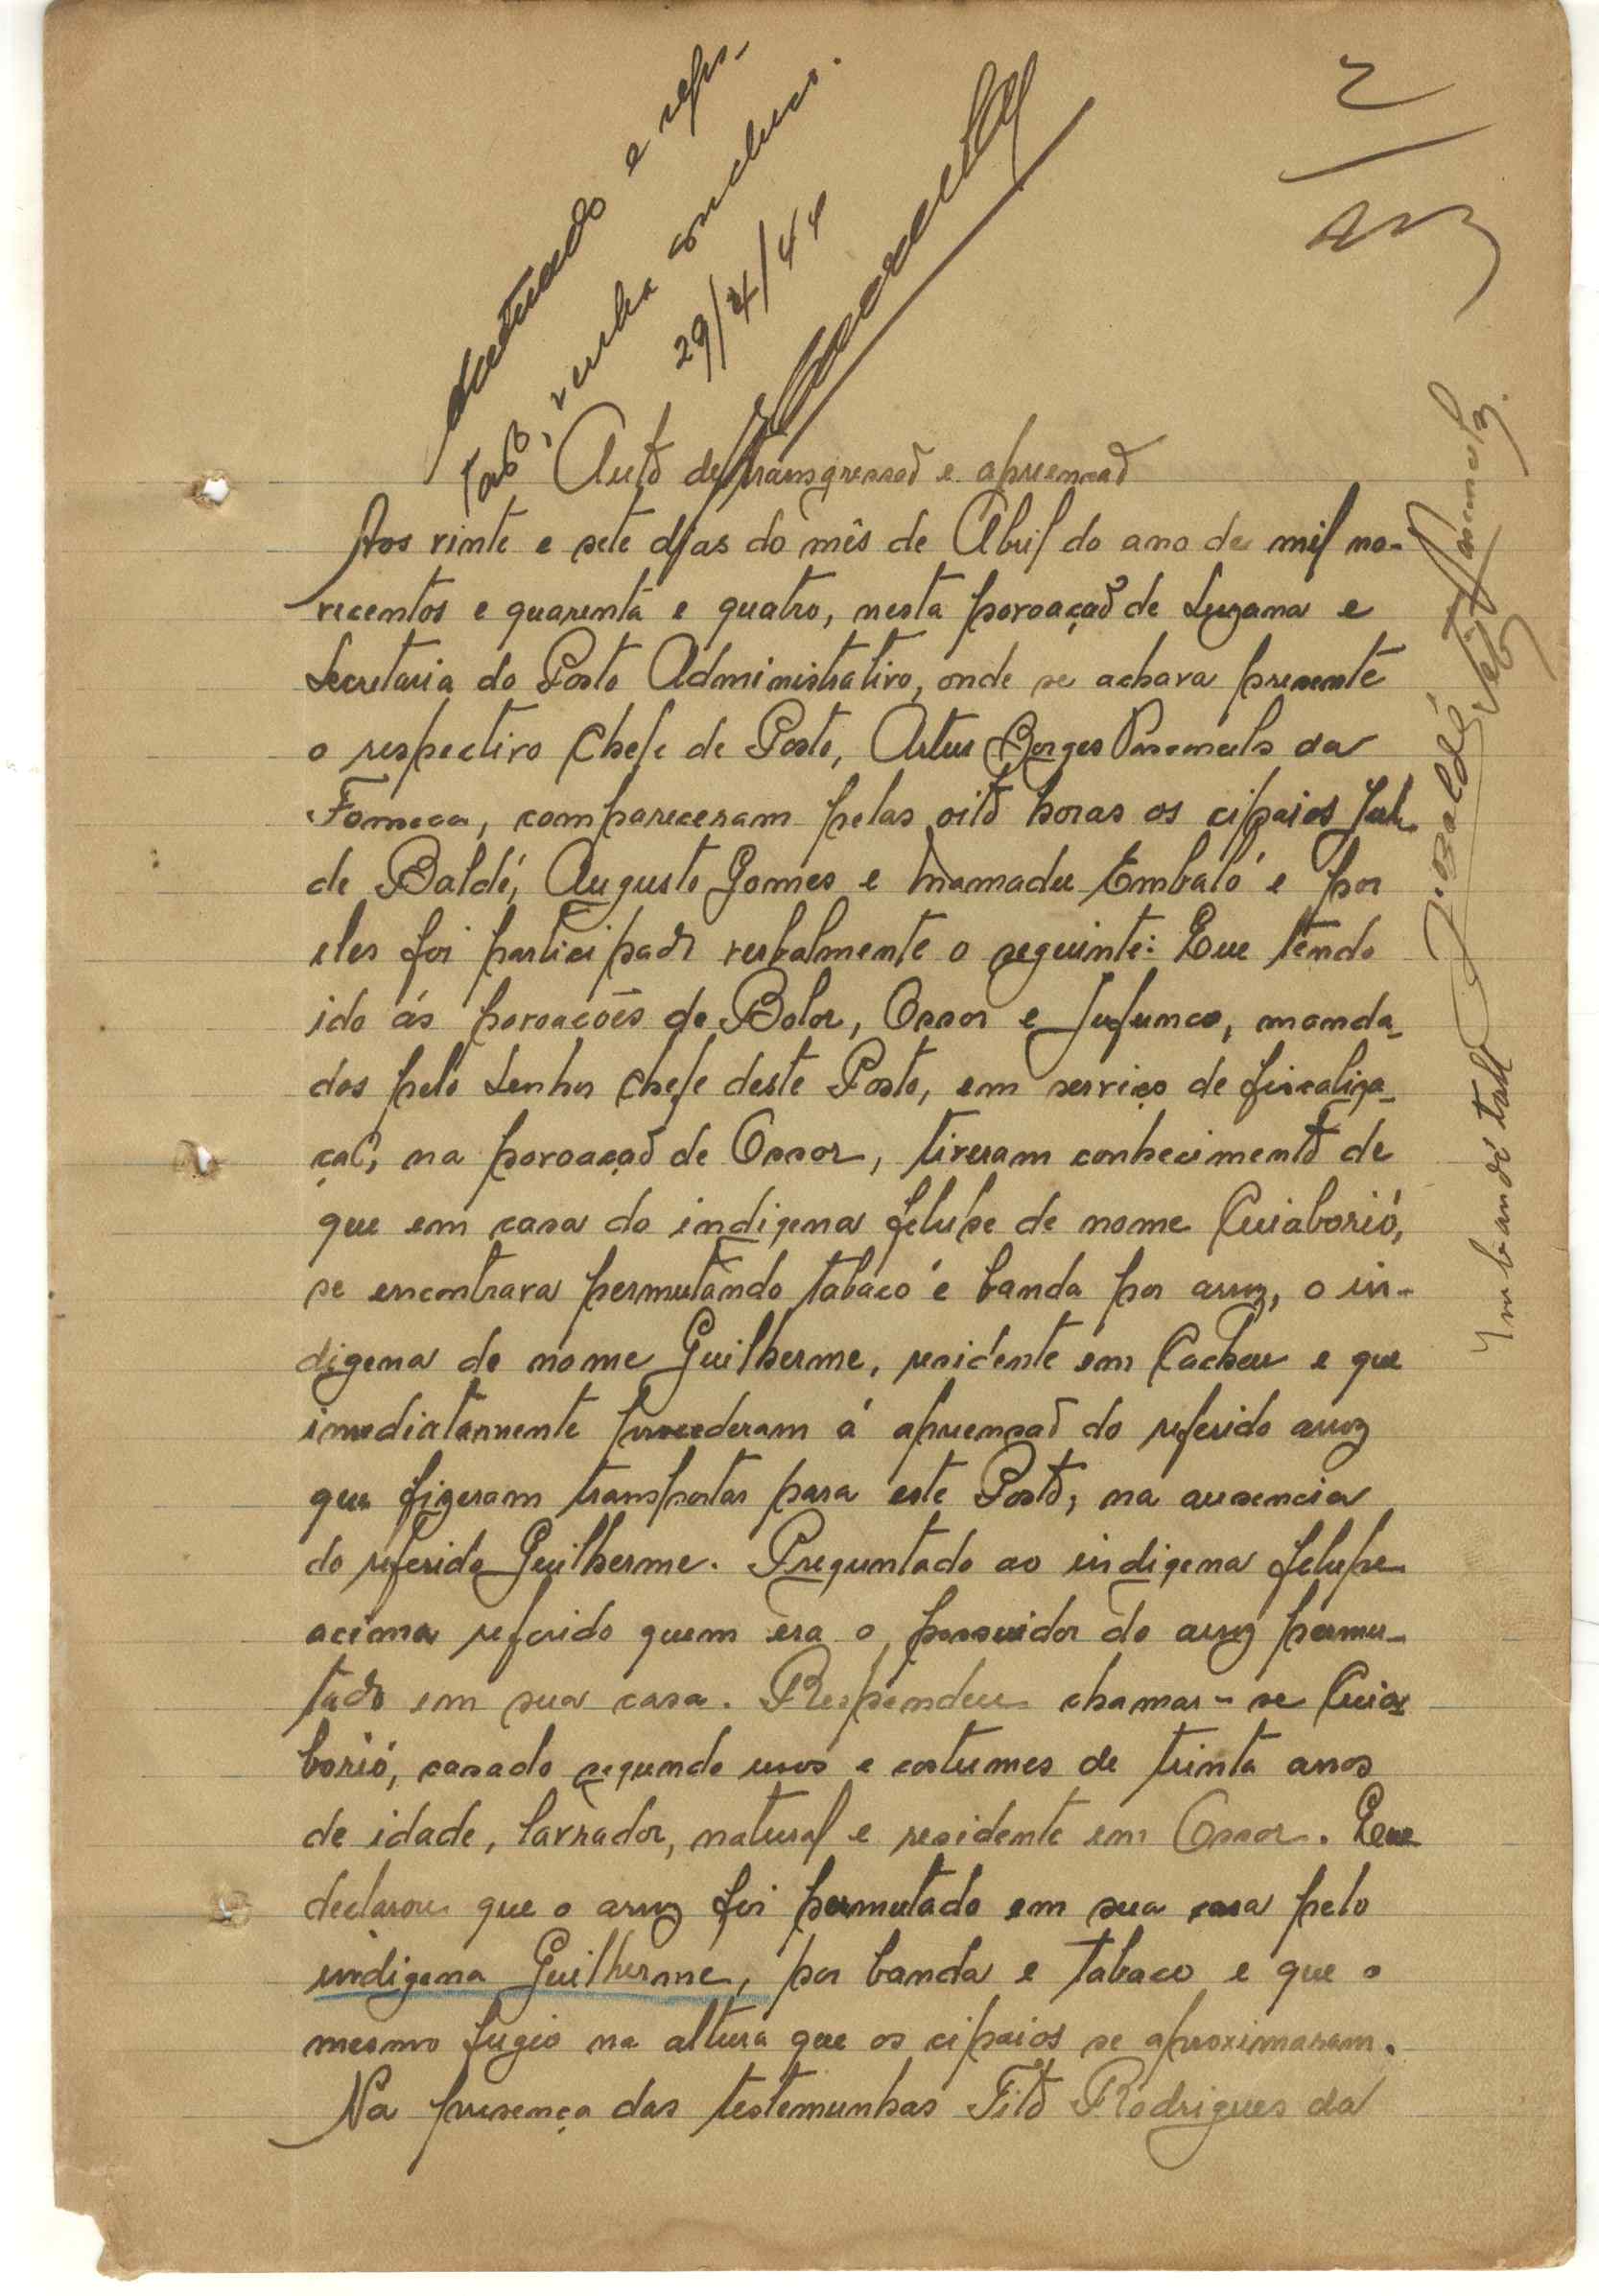 2
Autuado e regis-
tado, venha concluso.
29/4/44
Auto de transgressaõ e apreensaõ
Aos vinte e sete dias do mês de Abril do ano de mil no-
vecentos e quarenta e quatro, nesta povoaçaõ de Suzana e
Secretaria do Posto Administrativo, onde se achava presente
o respectivo Chefe de Posto, Artur Borges da
Fonseca, compareceram pelas oito horas os cipaios
de Baldé, Augusto Gomes e Mamadu Embaló e por
eles foi participado verbalmente o seguinte: Que tendo
ido ás povoacões de Bolor, Ossor e Jufunco, manda-
dos pelo Senhor Chefe deste Posto, em serviço de fiscaliza-
çaõ, na povoaçaõ de Ossor, tiveram conhecimento de
que em casa do indigena felupe de nome Cuiaborió,
se encontrava permutando tabaco e banda por arroz, o in-
digena de nome Guilherme, residente em Cacheu e que
imediatamente procederam á apreensaõ do referido arroz
que fizeram transportar para este Posto, na ausencia
do referido Guilherme. Preguntado ao indigena felupe
acima referido quem era o possuidor do arroz permu-
tado em sua casa. Respondeu chamar-se Cuia
borió, casado segundo usos e costumes de trinta anos
de idade, lavrador, natural e residente em Ossor. Que
declarou que o arroz foi permutado em sua casa pelo
indigena Guilherme, por banda e tabaco e que o
mesmo fugio na altura que os cipaios se aproximaram.
Na presença das testemunhas Tito Rodrigues da
J. Baldé